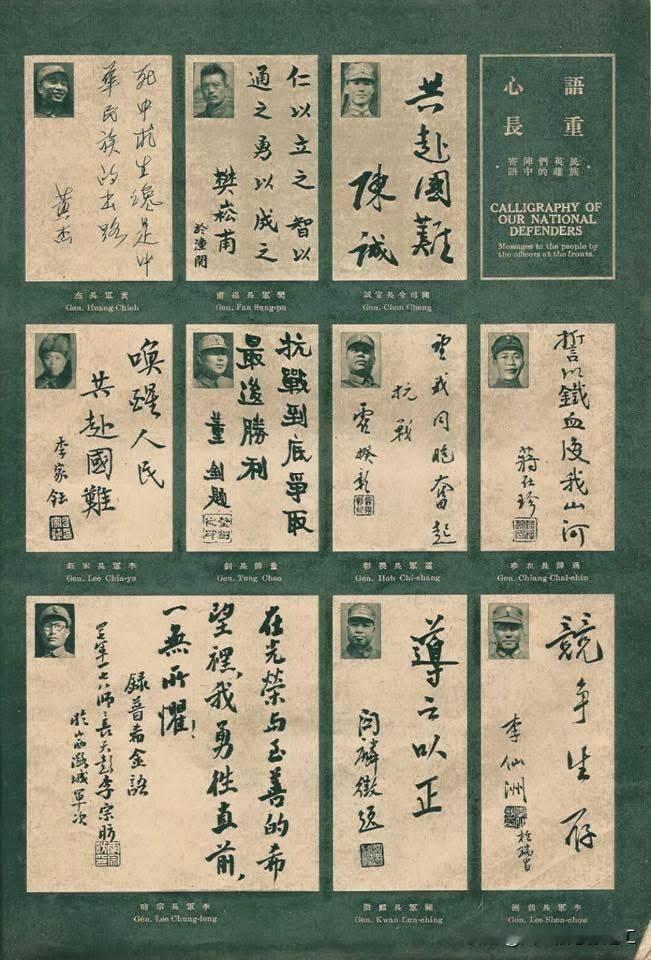 語重
心長
民族
英雄
們的
陣中
寄語
CALLIGRAPHY OF
OUR NATIONAL
DEFENDERS
Messages to the people by
the officers at the fronts.
共赴國難
陳誠
陳司令長官誠
Gen. Chen Cheng
仁以立之智以
通之勇以成之
樊崧甫
於潼関
樊軍長崧甫
Gen. Fan Sung-pu
死中找生纔是中
華民族的出路
黃杰
黃軍長杰
Gen. Huang Chieh
誓以鐵血復我山河
蔣在珍
蔣師長在珍
Gen. Chiang Chai-chin
望我同胞奮起
抗戰
霍揆彰
霍軍長揆彰
Gen. Hoh Chi-chang
抗戰到底爭取
最後勝利
董釗題
董師長釗
Gen. Tung Chao
喚醒人民
共赴國難
李家鈺
李軍長家鈺
Gen. Lee Chia-yu
競爭生存
李仙洲
李軍長仙洲
Gen. Lee Shen-chow
導之以正
関麟徵題
關軍長麟徵
Gen. Kwan Lun-ching
在光榮與至善的希
望裡,我勇往直前,
一無所懼!
錄普希金語
軍一七八師師長天彭李宗昉
於山西潞城軍次
李軍長宗昉
Gen. Lee Chung-fong